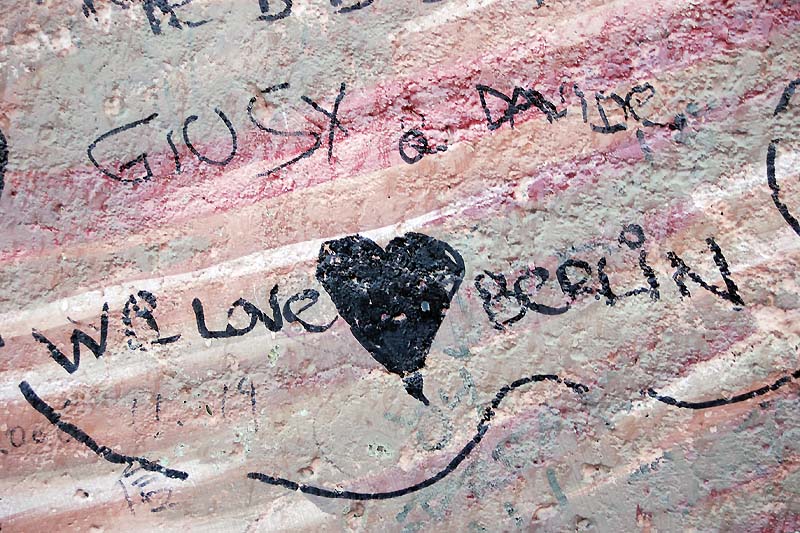 GIUSY & DAVIDE
We Love BeRLiN
11.19